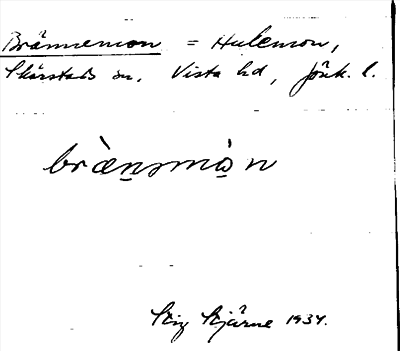 Brännemon = Hulemon,
Skärstads sn. Vista hd, Jönk. l.
brænsmòn
Stig Stjärne 1934.